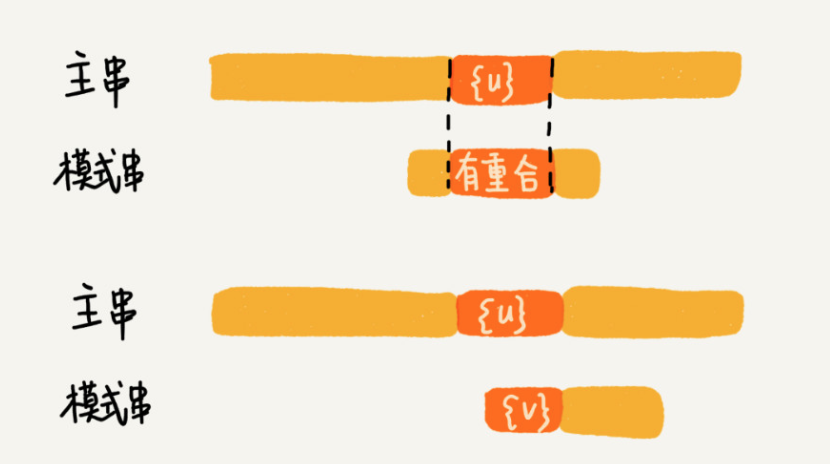 主串 {u}
模式串 有重合
主串 {u}
模式串 {v}